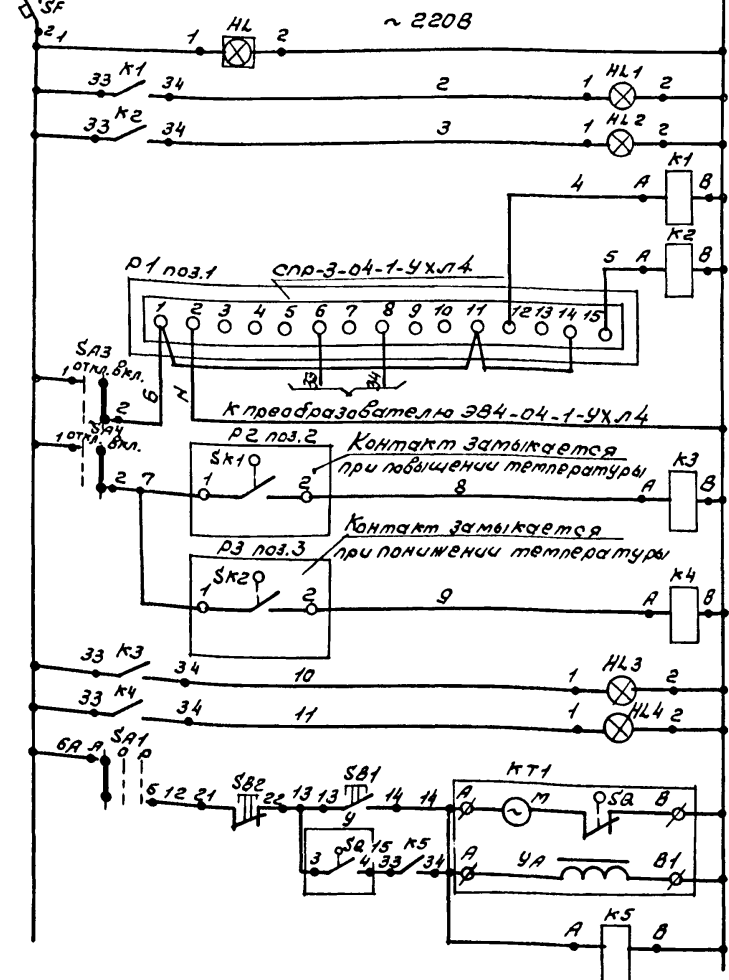 SF
~ 220В
2 1 1 HL 2
33 К1 34 2 1 HL1 2
33 К2 34 3 1 HL2 2
4 А К1 В
5 А К2 В
Р1 поз.1 СПР-3-04-1-УХЛ4
1 2 3 4 5 6 7 8 9 10 11 12 13 14 15
SA3
1 откл. вкл.
2
6 N 33 34
К преобразователю ЭВ4-04-1-УХЛ4
SA4
1 откл. вкл.
2 7
Р2 поз.2
SK1
1 2
Контакт замыкается
при повышении температуры
8 А К3 В
Р3 поз.3
SK2
1 2
Контакт замыкается
при понижении температуры
9 А К4 В
33 К3 34 10 1 HL3 2
33 К4 34 11 1 HL4 2
SA1
6А А О Р
Б 12 21 SB2 22 13 13 SB1 14 14
КТ1
А М SQ В
У
3 SQ 4 15 33 К5 34
А УА В1
А К5 В